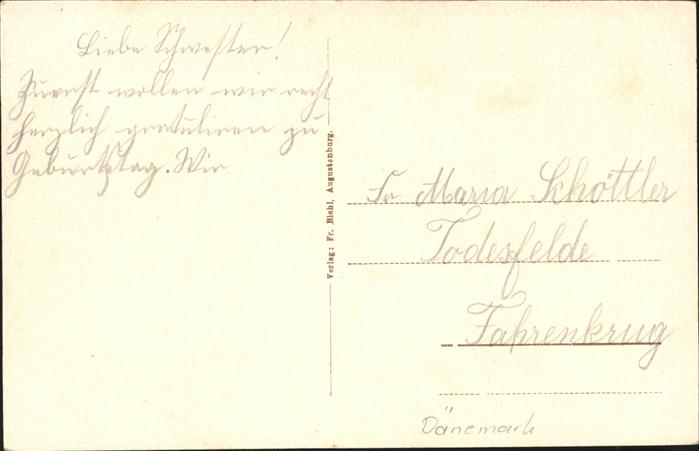 Liebe Schwester!
Zuerst wollen wir recht
herzlich gratuliren zu
Geburtstag. Wir
Verlag: Fr. Biehl, Augustenburg.
Fr Maria Schöttler
Todesfelde
Fahrenkrug
Dänemark